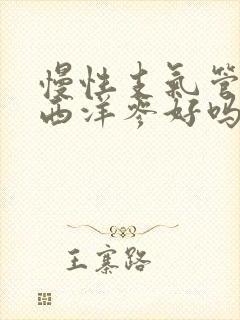 慢性支氣管
西洋參好嗎
王寨路